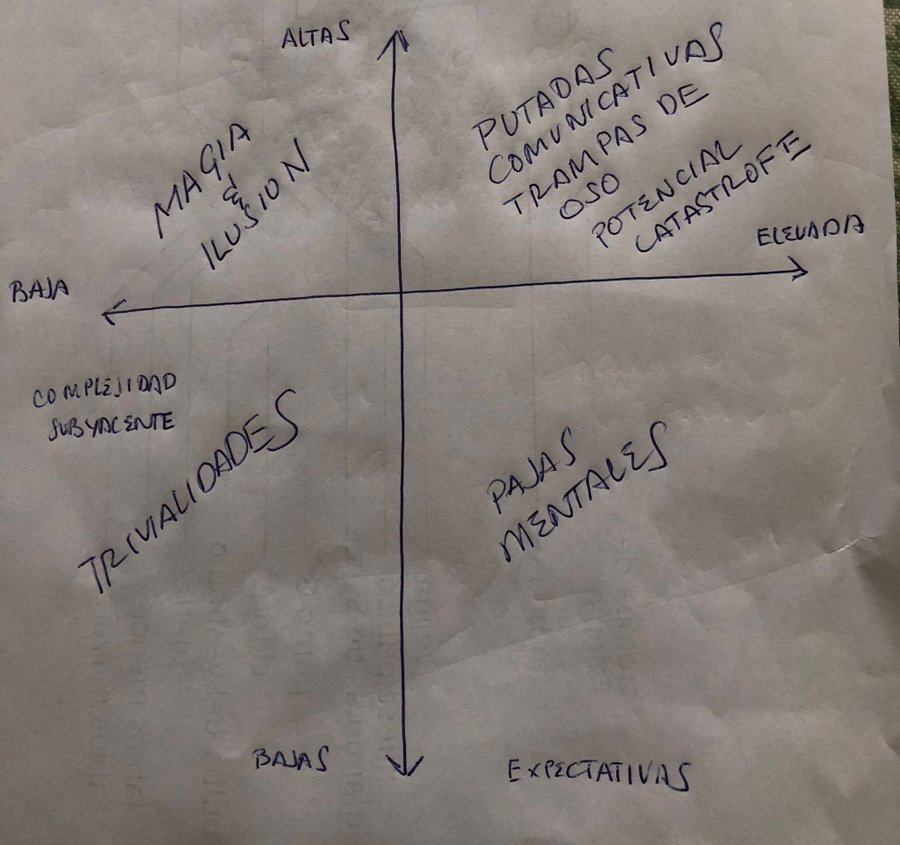 ALTAS
PUTADAS
COMUNICATIVAS
TRAMPAS DE
OSO
POTENCIAL
CATASTROFE
MAGIA
&
ILUSION
ELEVADA
BAJA
COMPLEJIDAD
SUBYACENTE
TRIVIALIDADES
PAJAS
MENTALES
BAJAS
EXPECTATIVAS